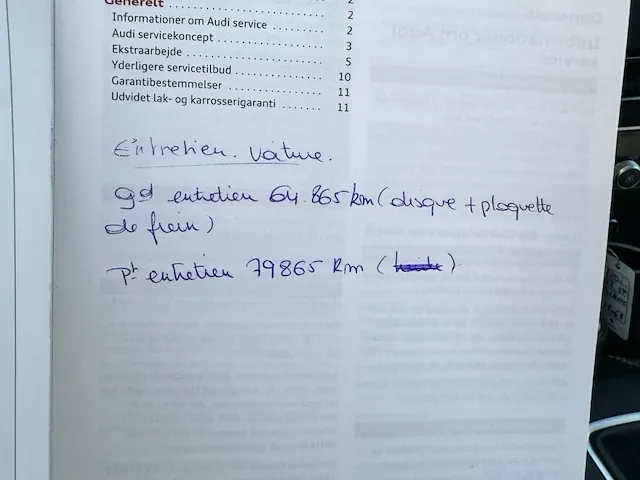 Generelt 2
Informationer om Audi service 2
Audi servicekoncept 3
Ekstraarbejde 5
Yderligere servicetilbud 10
Garantibestemmelser 11
Udvidet lak- og karrosserigaranti 11
Entretien. voiture.
gd entretien 64.865 km (disque + plaquette
de frein)
Pt entretien 79865 km ( )